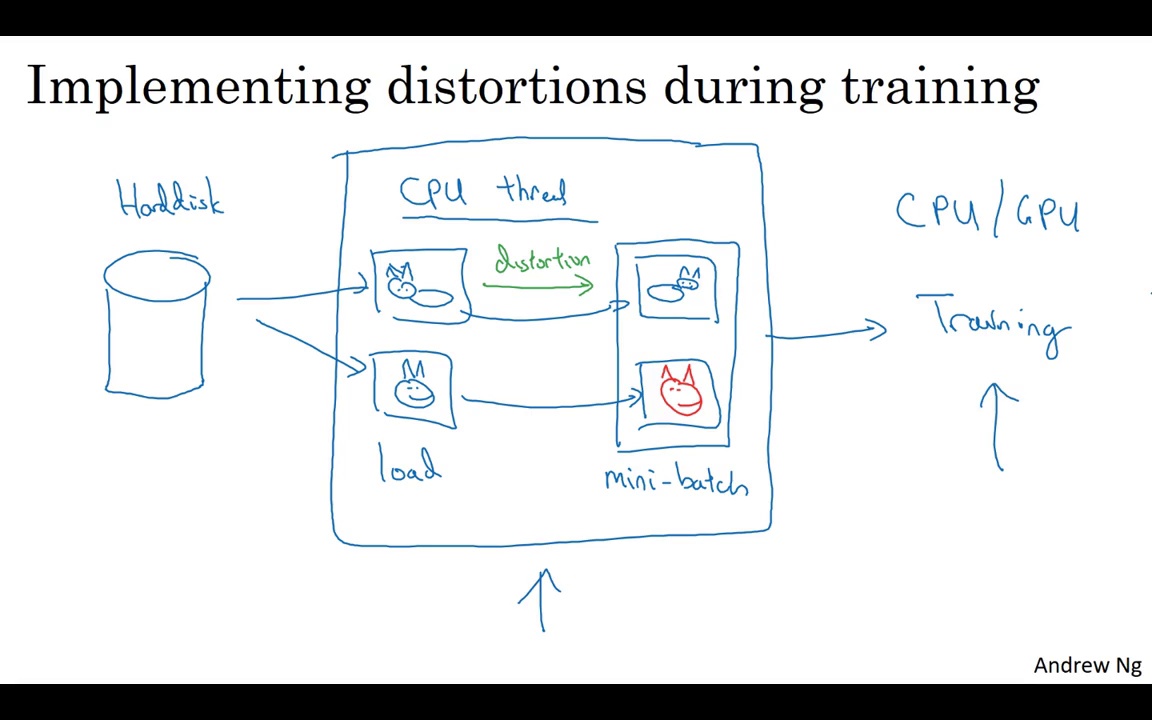 Implementing distortions during training
Harddisk
CPU thread
distortion
load
mini-batch
CPU/GPU
Training
Andrew Ng